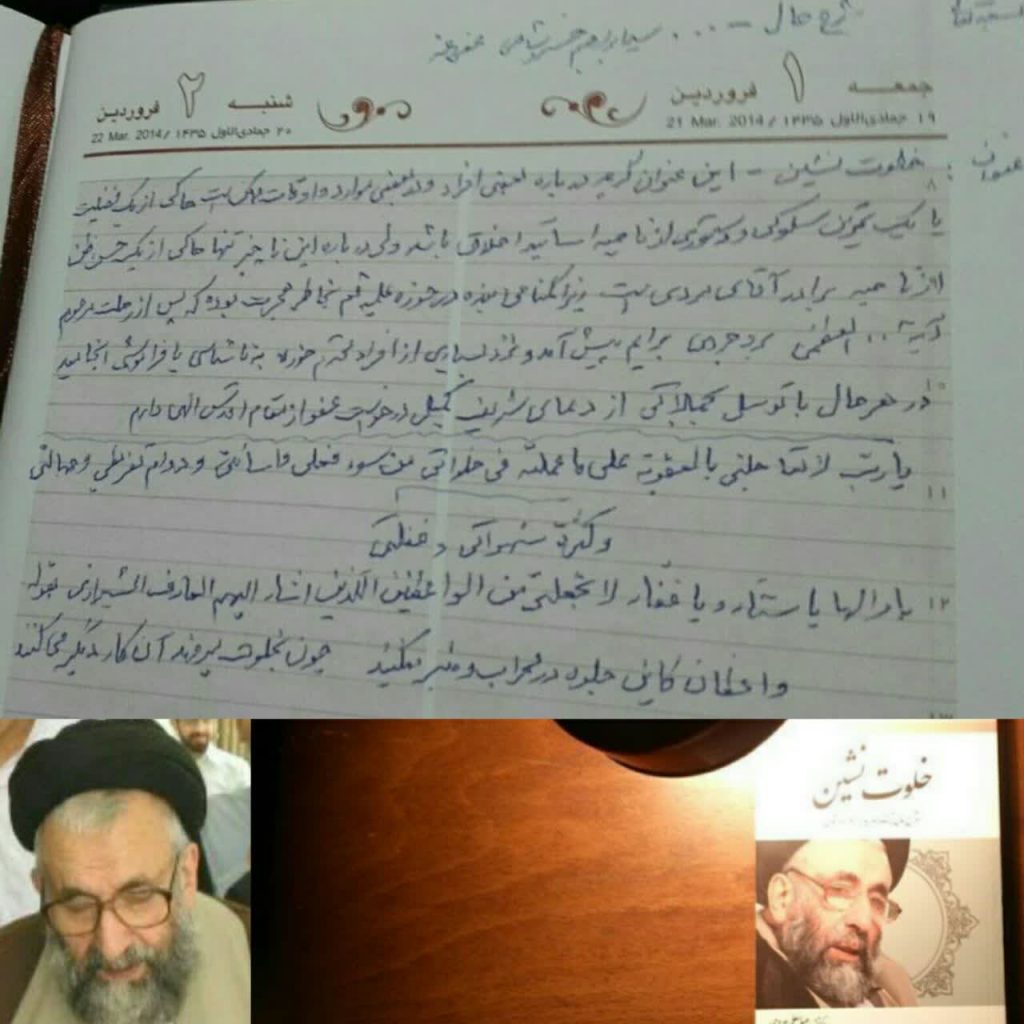 شرح حال - ... سید ابراهیم خسروشاهی
جمعه ۱ فروردین
۱۹ جمادی‌الاول ۱۴۳۵ / 21 Mar. 2014
شنبه ۲ فروردین
۲۰ جمادی‌الاول ۱۴۳۵ / 22 Mar. 2014
عنوان:
خلوت نشین - این عنوان گرچه درباره بعضی افراد و در بعضی موارد و اوقات ممکن است حاکی از یک فضیلت
یا یک تمرین سلوکی و دستوری از ناحیه اساتید اخلاق باشد ولی درباره این ناچیز تنها حاکی از یک حسن ظن
از ناحیه برادر آقای مردی است زیرا گمنامی بنده در حوزه علمیه قم بخاطر هجرت بوده که پس از رحلت مرحوم
آیة ... العظمی بروجردی برایم پیش آمد و نزد بسیاری از افراد محترم حوزه به ناشناسی یا فراموشی انجامید
۱۰
در هر حال با توسل بجملاتی از دعای شریف کمیل درخواست عفو از مقام اقدس الهی دارم
یا رب لا تعاجلنی بالعقوبة علی ما عملته فی خلواتی من سوء فعلی و اسائتی و دوام تفریطی و جهالتی
۱۱
و کثرة شهواتی و غفلتی
۱۲
بارالها یا ستار و یا غفار لا تجعلنی من الواعظین الذین اشار الیهم العارف الشیرازی بقوله
واعظان کاین جلوه در محراب و منبر میکنند چون بخلوت میروند آن کار دیگر میکنند
خلوت نشین